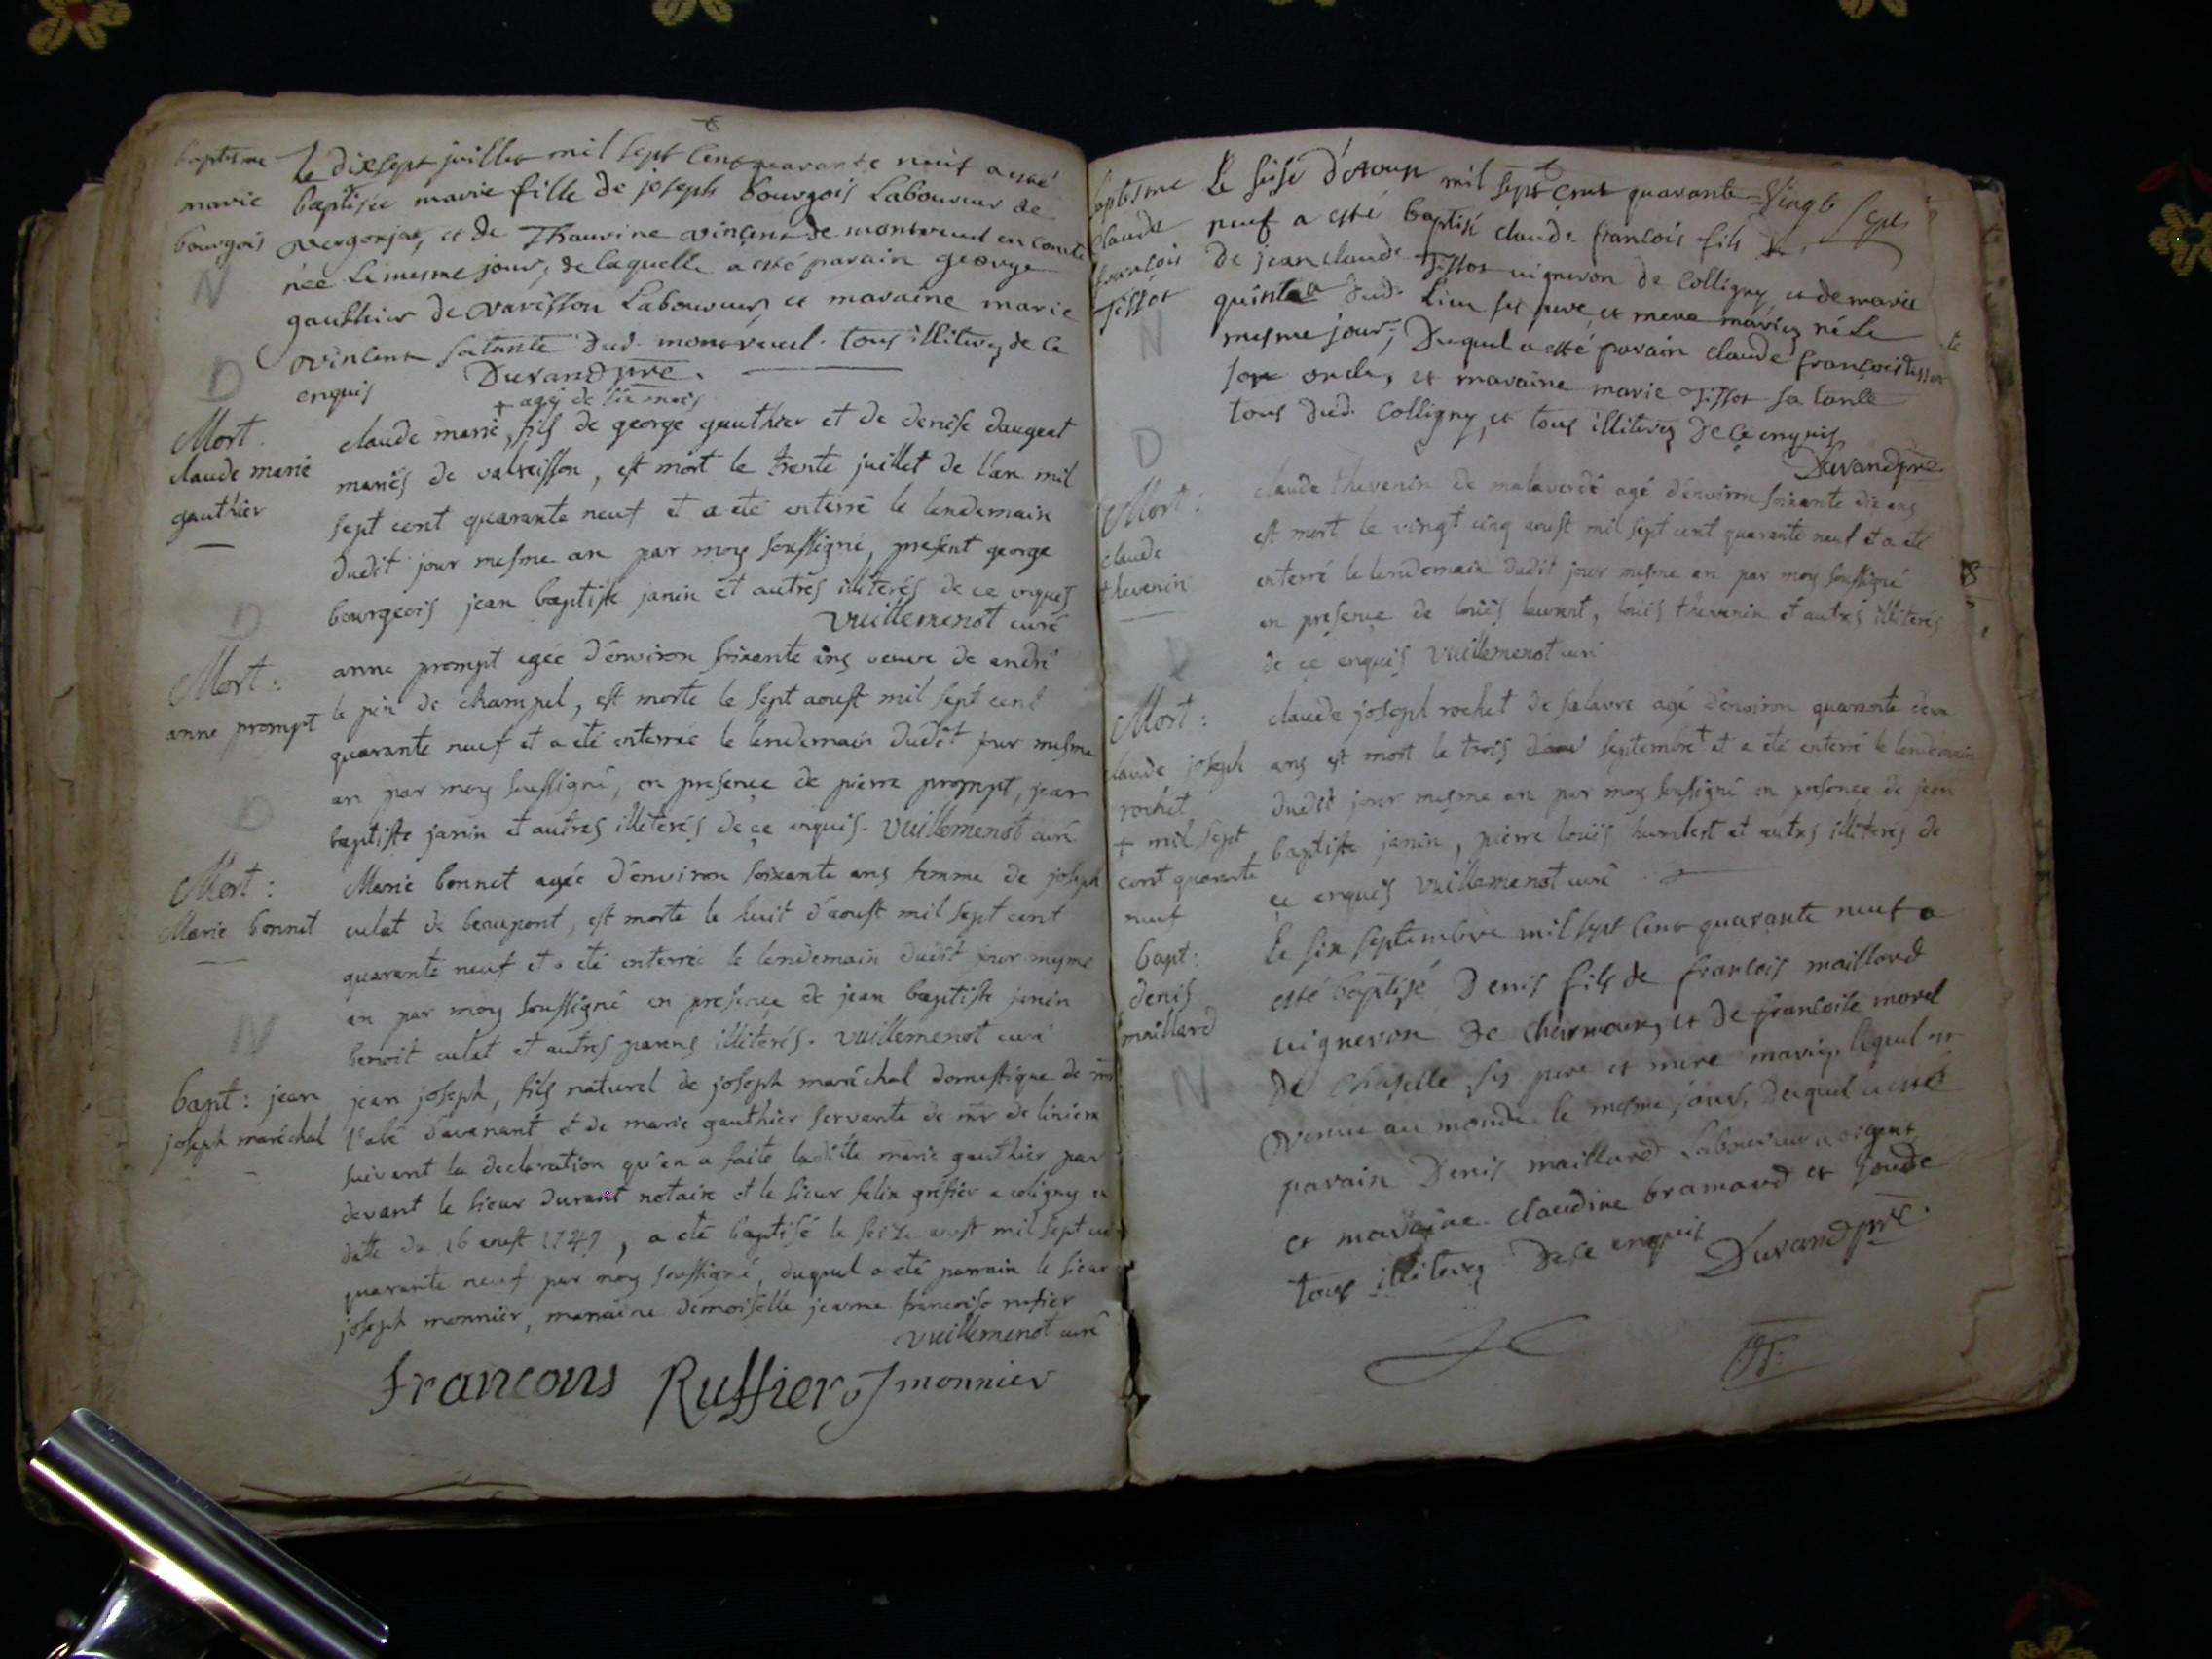 baptisme
marie
bourgois
N
Le dixsept juillet mil sept cent quarante neuf a esté
baptisée marie fille de joseph bourgois Laboureur de
vergonjat, et de Thaurine vincent de montreveul en comté
née le mesme jour, de laquelle a esté parain george
gauthier de varissou Laboureur, et maraine marie
vincent sa tante dud. montreveul. tous illiterez de ce
enquis Durand pre.
D
Mort.
claude marie
gauthier
+ agé de six mois
claude marie, fils de george gauthier et de denise daugent
mariés de valveisson, est mort le trente juillet de l'an mil
sept cent quarante neuf et a eté enterré le lendemain
dudit jour mesme an par moy soussigné, present george
bourgeois jean baptiste janin et autres illiterés de ce enques
Vuillemenot curé
D
Mort:
anne prompt
anne prompt agée d'environ soixante ans veuve de andré
le pin de champel, est morte le sept aoust mil sept cent
quarante neuf et a eté enterrée le lendemain dudit jour mesme
an par moy soussigné, en presence de pierre prompt, jean
baptiste janin et autres illiterés de ce enquis. Vuillemenot curé
D
Mort:
Marie bonnet
Marie bonnet agée d'environ soixante ans femme de joseph
culat de beaupont, est morte le huit d'aoust mil sept cent
quarante neuf et a eté enterrée le lendemain dudit jour mesme
an par moy soussigné en presence de jean baptiste janin
benoit culat et autres parens illiterés. Vuillemenot curé
N
bapt: jean
joseph maréchal
jean joseph, fils naturel de joseph maréchal domestique de mr
l'abé davanant et de marie gauthier servante de mr de
suivant la declaration qu'en a faite laditte marie gauthier par
devant le sieur durant notaire et le sieur felix gréfier a coligny en
datte du 16 aoust 1749, a eté baptisé le seize aoust mil sept cent
quarante neuf par moy soussigné, duquel a eté parrain le sieur
joseph monnier, marraine demoiselle jeanne francoise rufier
Vuillemenot curé
francons Ruffier J monnier
baptisme
claude
francois
Tissot
N
Le seise d'aoust mil sept cent quarante = Vingt sept
neuf a esté baptisé claude francois fils
de jean claude Tissot vigneron de Colligny et de marie
quint dud. Lieu ses pere et mere mariez né le
mesme jour, Duquel a esté parain claude francois tissot
son oncle, et maraine marie Tissot sa tante
tous dud. Colligny, et tous illiterez de ce enquis
Durand pre.
D
Mort:
claude
thevenin
claude thevenin de malaverde agé d'environ soixante dix ans
est mort le vingt cinq aoust mil sept cent quarante neuf et a eté
enterré le lendemain dudit jour mesme an par moy soussigné
en presence de loüis laurent, loüis thevenin et autres illiterés
de ce enquis Vuillemenot curé
D
Mort:
claude joseph
rochet
+ mil sept
cent quarante
neuf
claude joseph rochet de salavre agé d'environ quarante deux
ans est mort le trois septembre + et a eté enterré le lendemain
dudit jour mesme an par moy soussigné en presence de jean
baptiste janin, pierre loüis humbert et autres illiterés de
ce enques Vuillemenot curé
bapt:
denis
maillard
N
Le six septembre mil sept cent quarante neuf a
esté baptisé Denis fils de francois maillard
vigneron de charmoux, et de francoise morel
de Chaselle ses pere et mere mariez, lequel est
venu au monde le mesme jour, Duquel a esté
parain Denis maillard Laboureur a
et maraine claudine bramard et
tous illiterez de ce enquis Durand pre.